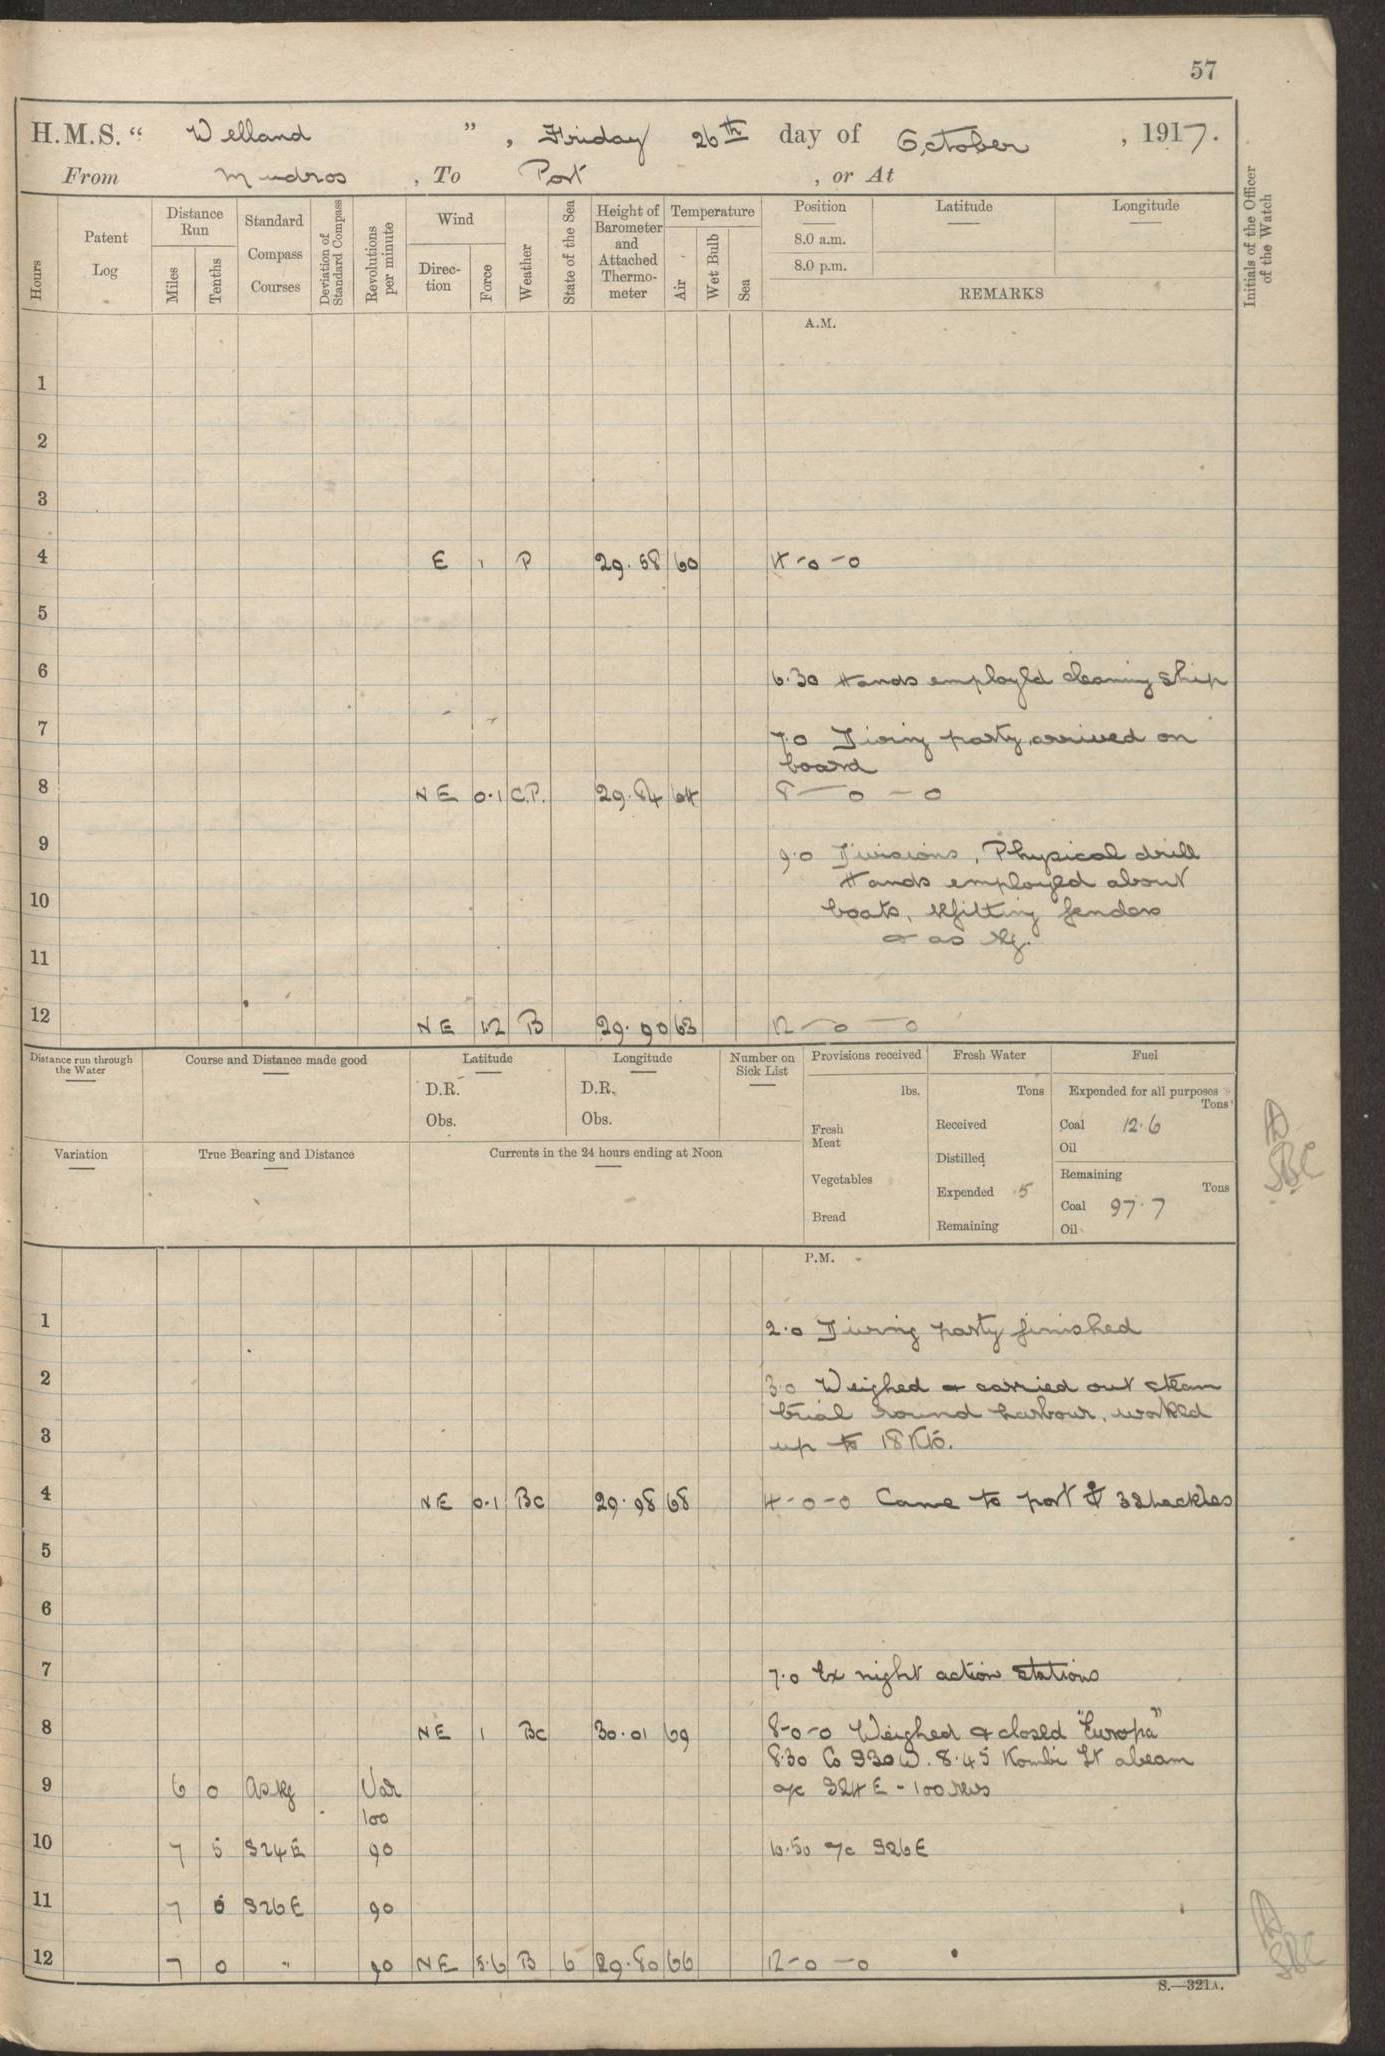 57
H.M.S. “ Welland ” , Friday 26th day of October , 1917.
From Mudros , To Port , or At
Hours
Patent Log
Distance Run
Miles
Tenths
Standard Compass Courses
Deviation of Standard Compass
Revolutions per minute
Wind
Direc-tion
Force
Weather
State of the Sea
Height of Barometer and Attached Thermo-meter
Temperature
Air
Wet Bulb
Sea
Position
8.0 a.m.
8.0 p.m.
Latitude
Longitude
REMARKS
Initials of the Officer of the Watch
A.M.
1
2
3
4 E 1 P 29.58 60 4-0-0
5
6
6.30 Hands employed cleaning ship
7
7.0 Diving party arrived on
board
8 NE 0.1 C.P. 29.84 64 8-0-0
9
9.0 Divisions, Physical drill
Hands employed about
10
boats, refitting fenders
& as rq.
11
12 NE 1.2 B 29.90 63 12-0-0
Distance run through the Water
Course and Distance made good
Latitude
D.R.
Obs.
Longitude
D.R.
Obs.
Number on Sick List
Provisions received
lbs.
Fresh Meat
Vegetables
Bread
Fresh Water
Tons
Received
Distilled
Expended 5
Remaining
Fuel
Expended for all purposes
Tons
Coal 12.6
Oil
Remaining
Tons
Coal 97.7
Oil
Variation
True Bearing and Distance
Currents in the 24 hours ending at Noon
P.M.
1
2.0 Diving party finished
2
3.0 Weighed & carried out steam
trial round harbour, worked
3
up to 18 Kts.
4 NE 0.1 BC 29.98 68 4-0-0 Came to port ⚓ 3 shackles
5
6
7
7.0 Ex night action stations
8 NE 1 BC 30.01 69 8-0-0 Weighed & closed "Europa"
8.30 Co S30W. 8.45 Kombi Lt abeam
9 6 0 As rq Var a/c S24E - 100 revs
100
10 7 5 S24E 90 10.50 a/c S26E
11 7 S26E 90
12 7 0 " 90 NE 5.6 B 6 29.80 66 12-0-0
S.—321A.